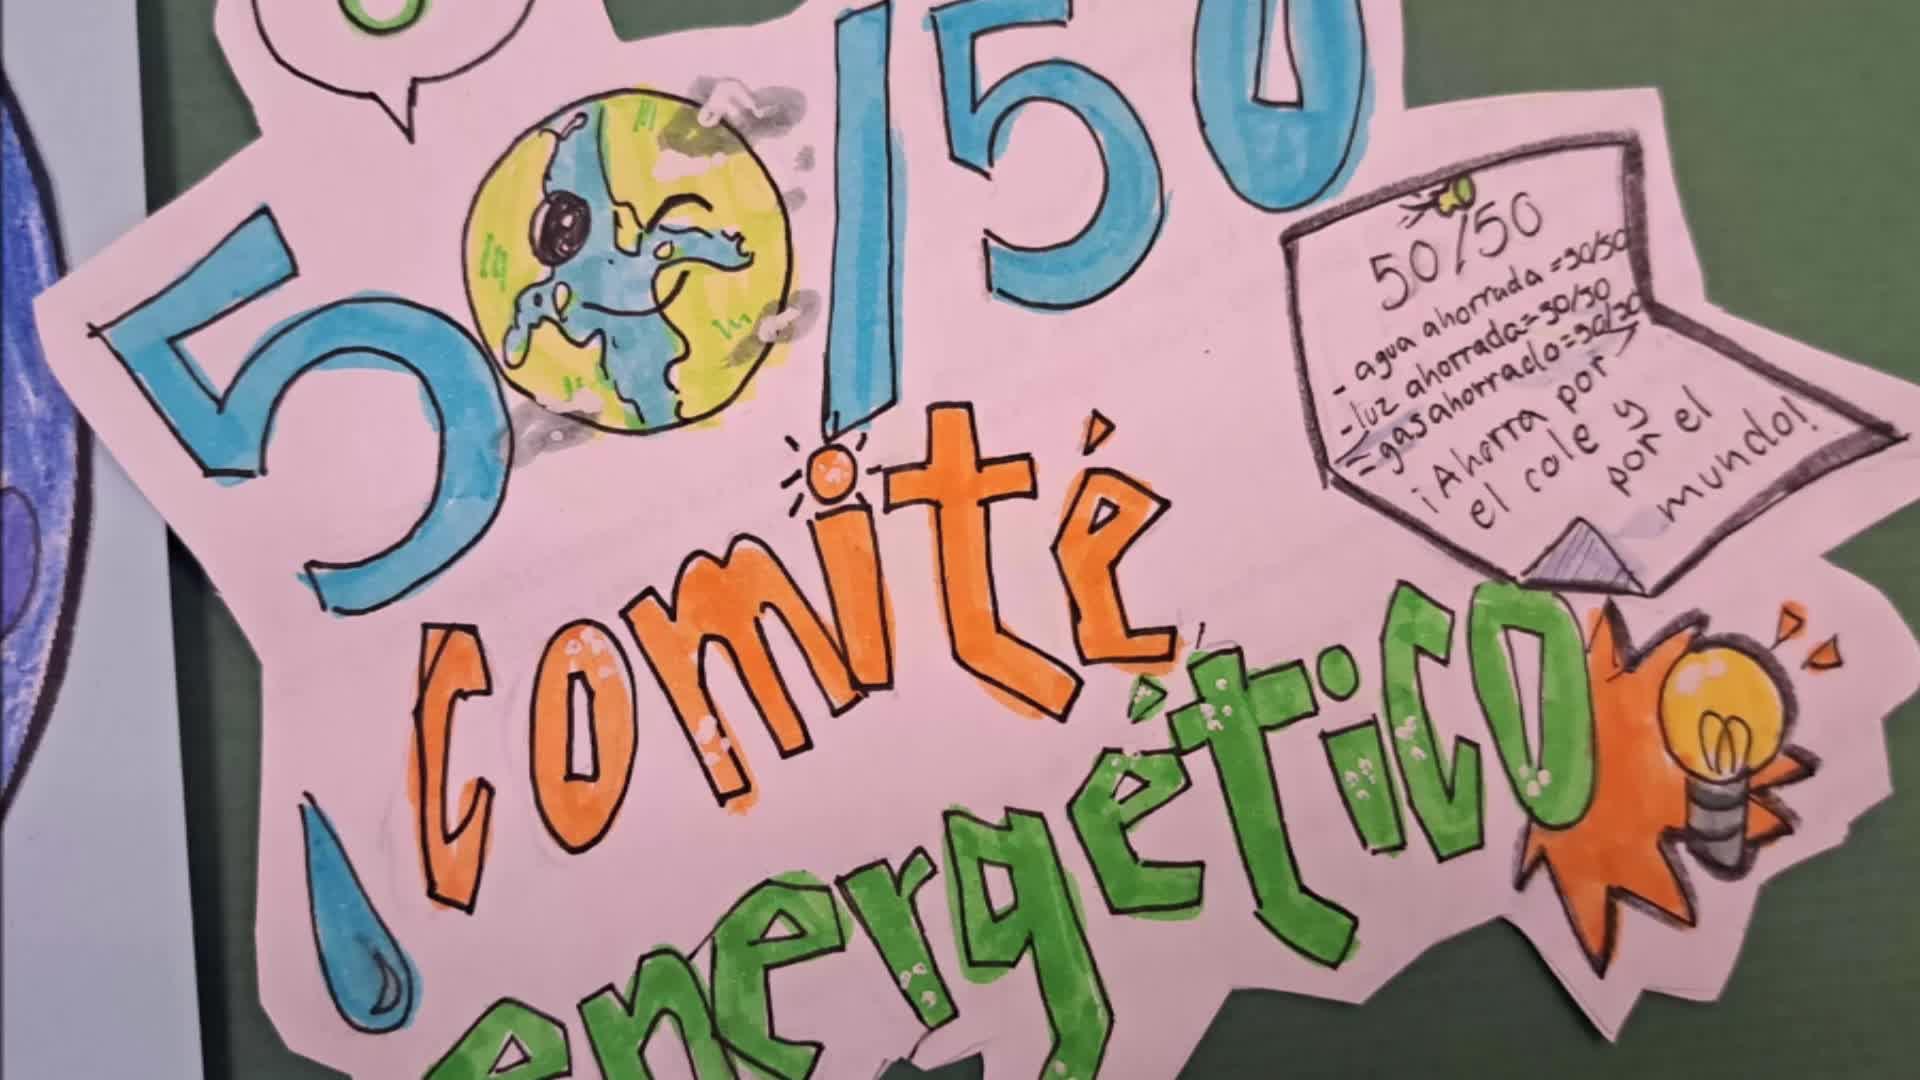 50/50
comité
energético
50/50
- agua ahorrada = 50/50
- luz ahorrada = 50/50
- gas ahorrado = 50/50
¡Ahorra por
el cole y
por el
mundo!